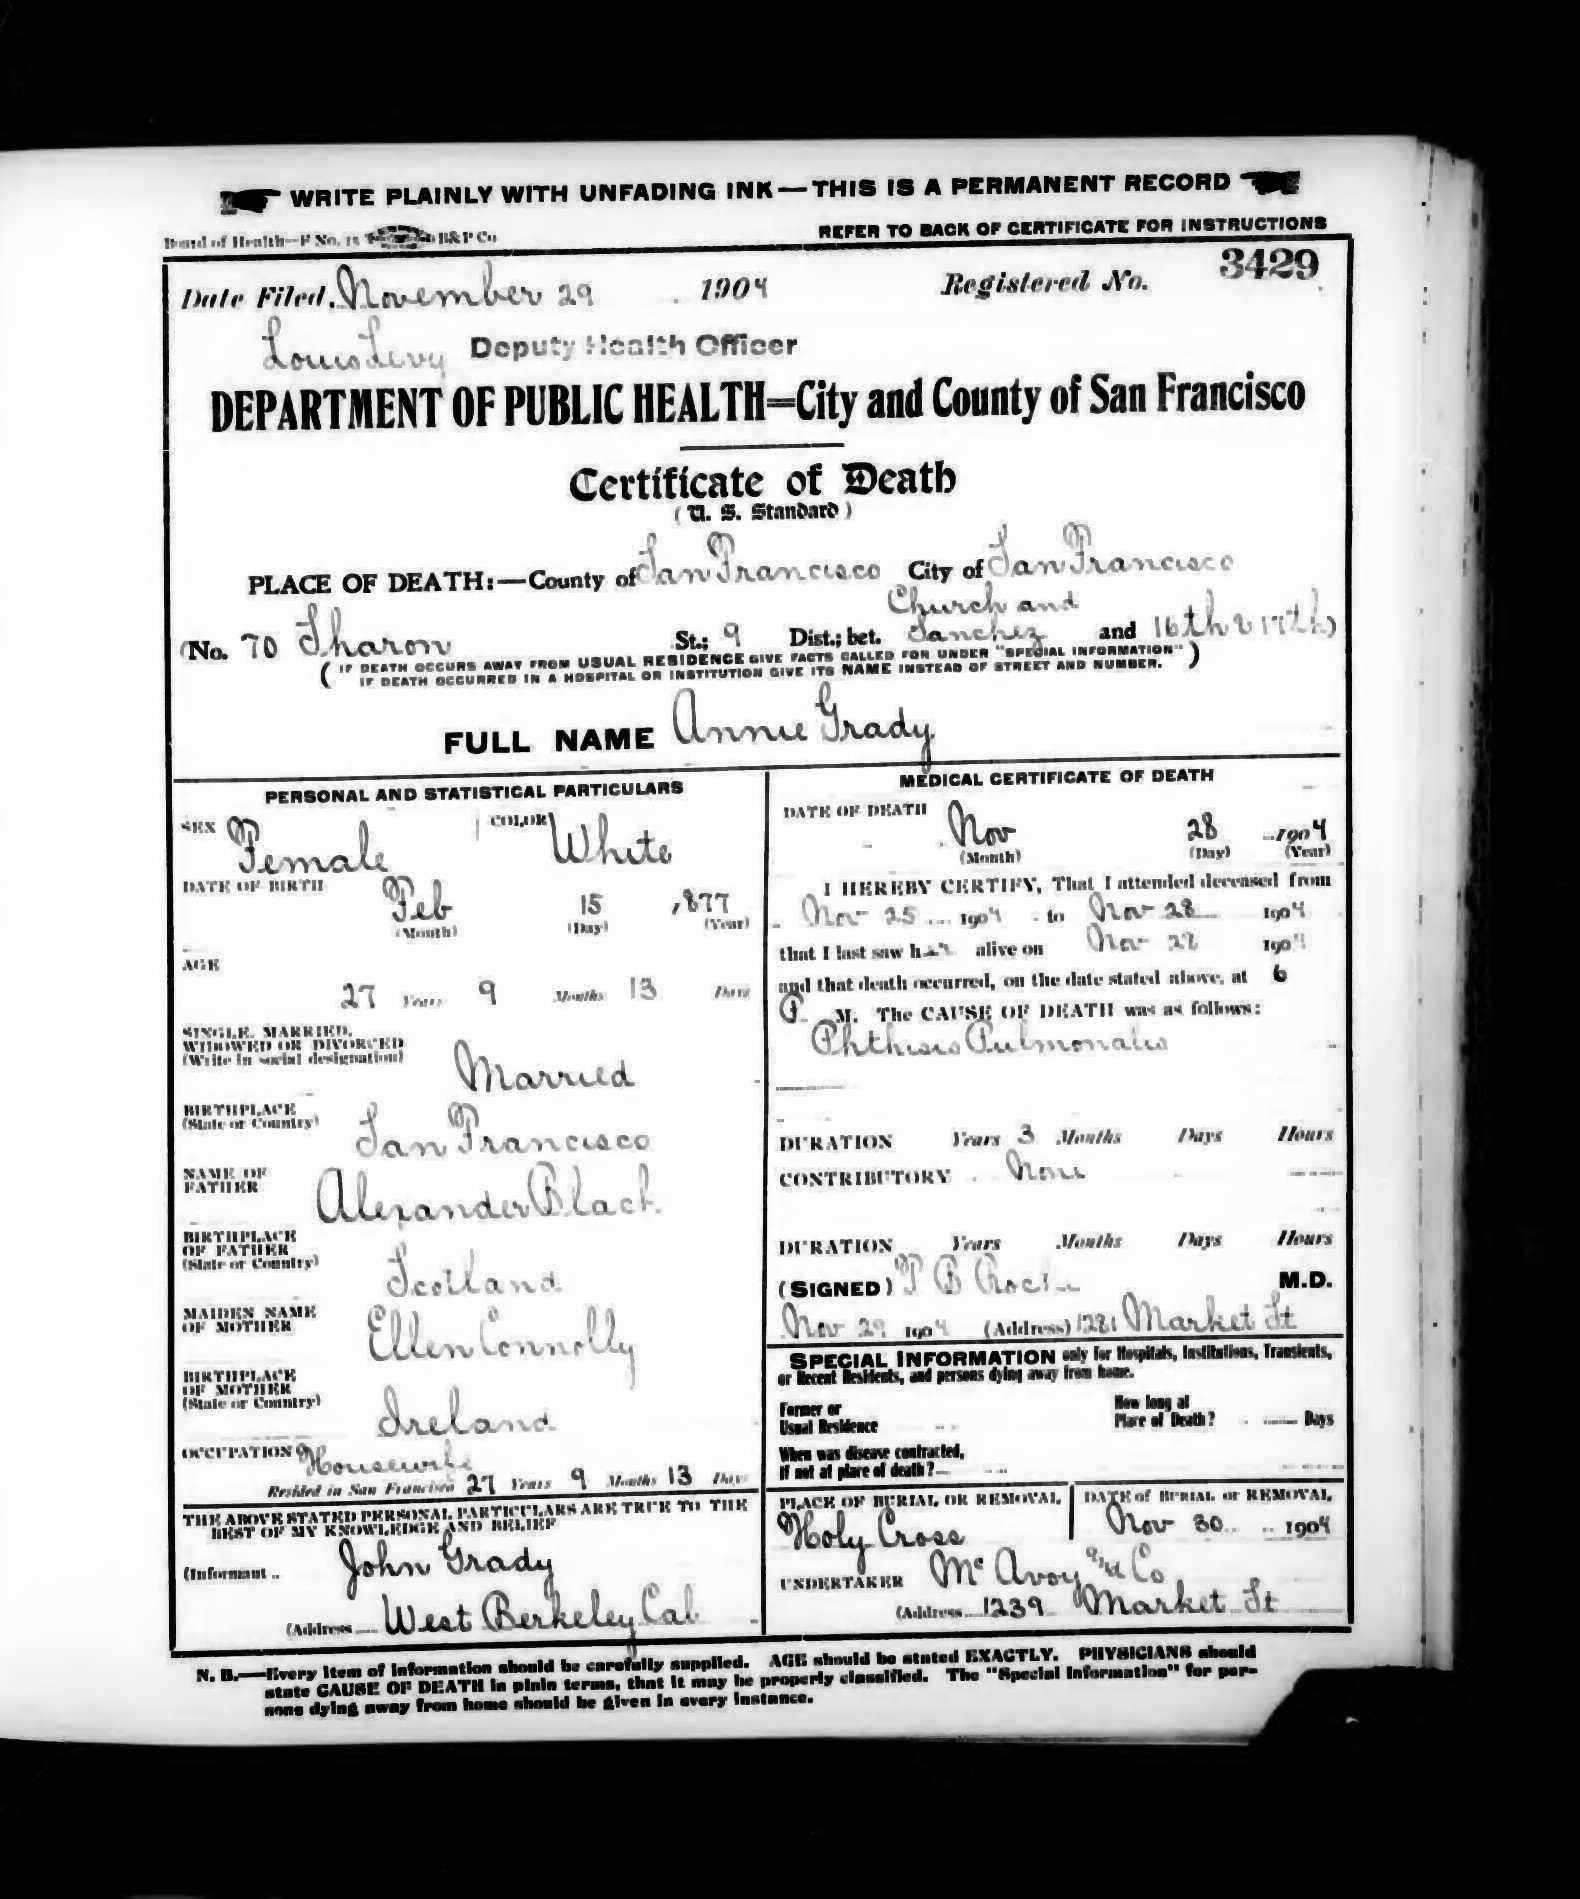 WRITE PLAINLY WITH UNFADING INK—THIS IS A PERMANENT RECORD
Board of Health—F No. 15 B&P Co
REFER TO BACK OF CERTIFICATE FOR INSTRUCTIONS
Date Filed, November 29 1904 Registered No. 3429
Louis Levy Deputy Health Officer
DEPARTMENT OF PUBLIC HEALTH=City and County of San Francisco
Certificate of Death
(U. S. Standard)
PLACE OF DEATH:—County of San Francisco City of San Francisco
Church and
(No. 70 Sharon St.; 9 Dist.; bet. Sanchez and 16th & 17th)
(IF DEATH OCCURS AWAY FROM USUAL RESIDENCE GIVE FACTS CALLED FOR UNDER "SPECIAL INFORMATION"
IF DEATH OCCURRED IN A HOSPITAL OR INSTITUTION GIVE ITS NAME INSTEAD OF STREET AND NUMBER.)
FULL NAME Annie Grady
PERSONAL AND STATISTICAL PARTICULARS
SEX Female COLOR White
DATE OF BIRTH
Feb 15 1877
(Month) (Day) (Year)
AGE
27 Years 9 Months 13 Days
SINGLE, MARRIED,
WIDOWED OR DIVORCED
(Write in social designation) Married
BIRTHPLACE
(State or Country) San Francisco
NAME OF
FATHER Alexander Black
BIRTHPLACE
OF FATHER
(State or Country) Scotland
MAIDEN NAME
OF MOTHER Ellen Connolly
BIRTHPLACE
OF MOTHER
(State or Country) Ireland
OCCUPATION Housewife
Resided in San Francisco 27 Years 9 Months 13 Days
THE ABOVE STATED PERSONAL PARTICULARS ARE TRUE TO THE
BEST OF MY KNOWLEDGE AND BELIEF
(Informant John Grady
(Address West Berkeley Cal
MEDICAL CERTIFICATE OF DEATH
DATE OF DEATH
Nov 28 1904
(Month) (Day) (Year)
I HEREBY CERTIFY, That I attended deceased from
Nov 25 1904 to Nov 28 1904
that I last saw her alive on Nov 28 1904
and that death occurred, on the date stated above, at 6
P. M. The CAUSE OF DEATH was as follows:
Phthisis Pulmonalis
DURATION Years 3 Months Days Hours
CONTRIBUTORY None
DURATION Years Months Days Hours
(SIGNED) T B Roche M.D.
Nov 29 1904 (Address) 1281 Market St
SPECIAL INFORMATION only for Hospitals, Institutions, Transients,
or Recent Residents, and persons dying away from home.
Former or
Usual Residence
How long at
Place of Death? Days
When was disease contracted,
If not at place of death?
PLACE OF BURIAL OR REMOVAL
Holy Cross
DATE of BURIAL or REMOVAL
Nov 30 1904
UNDERTAKER McAvoy and Co
(Address 1239 Market St
N. B.—Every item of information should be carefully supplied. AGE should be stated EXACTLY. PHYSICIANS should
state CAUSE OF DEATH in plain terms, that it may be properly classified. The "Special Information" for per-
sons dying away from home should be given in every instance.